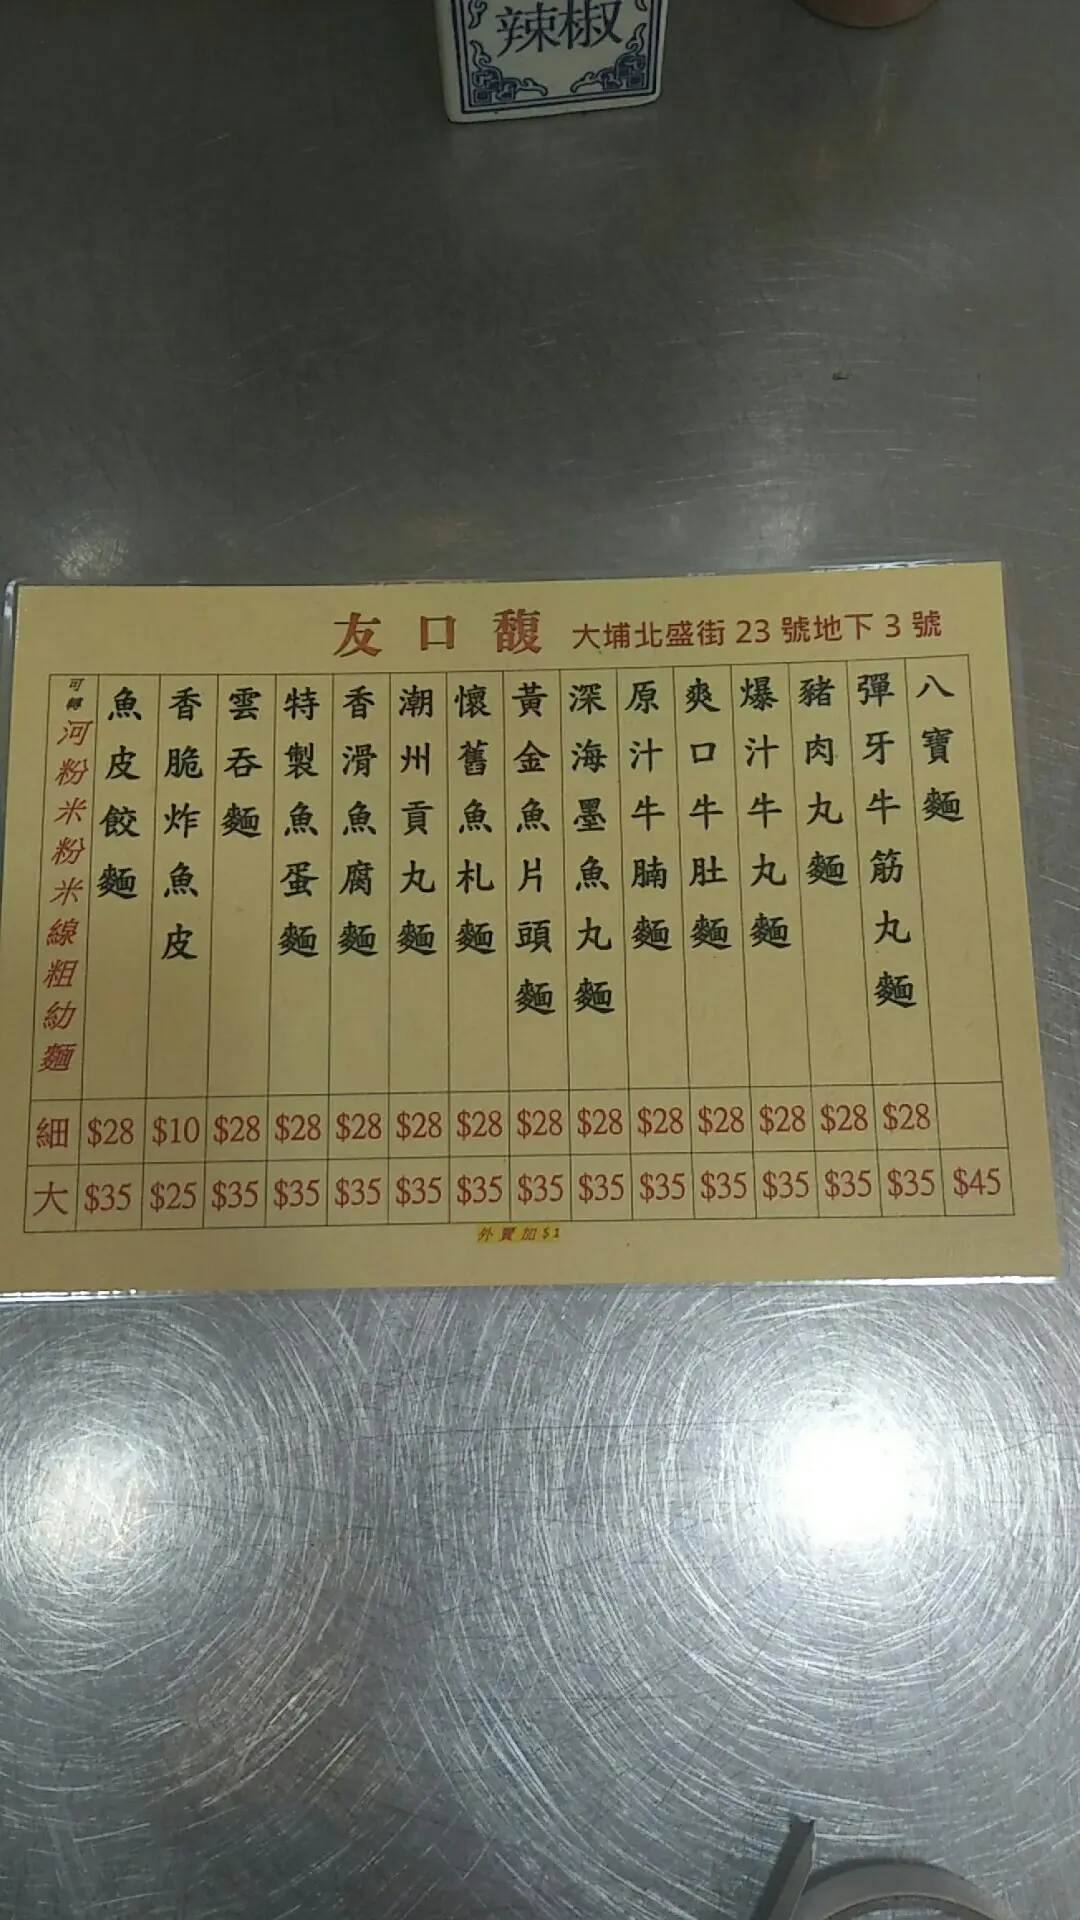 辣椒
友口馥 大埔北盛街 23 號地下 3 號
八寶麵
彈牙牛筋丸麵
豬肉丸麵
爆汁牛丸麵
爽口牛肚麵
原汁牛腩麵
深海墨魚丸麵
黃金魚片頭麵
懷舊魚札麵
潮州貢丸麵
香滑魚腐麵
特製魚蛋麵
雲吞麵
香脆炸魚皮
魚皮餃麵
可轉河粉米粉米線粗幼麵
細 $28 $10 $28 $28 $28 $28 $28 $28 $28 $28 $28 $28 $28 $28
大 $35 $25 $35 $35 $35 $35 $35 $35 $35 $35 $35 $35 $35 $35 $45
外賣加 $1